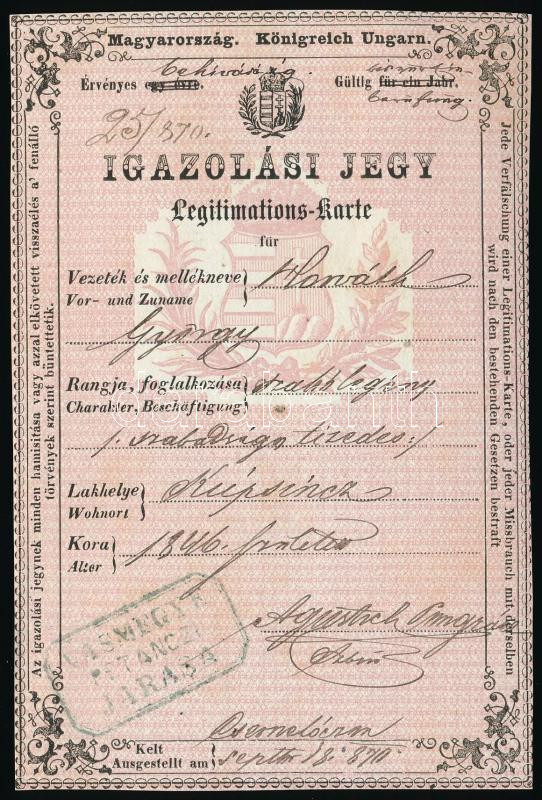 Magyarország. Königreich Ungarn.
Érvényes egy évre. Gültig für ein Jahr.
25/870.
IGAZOLÁSI JEGY
Legitimations-Karte
für
Vezeték és mellékneve Horváth
Vor- und Zuname
György
Rangja, foglalkozása
Charakter, Beschäftigung
szabadságo tizedes
Lakhelye
Wohnort
Kora 1846
Alter
VASMEGYE
JÁRÁSA
Kelt
Ausgestellt am septbr 18. 870.
Az igazolási jegynek minden hamisitása vagy azzal elkövetett visszaélés a' fenálló
törvények szerint büntettetik.
Jede Verfälschung einer Legitimations-Karte, oder jeder Missbrauch mit derselben
wird nach den bestehenden Gesetzen bestraft